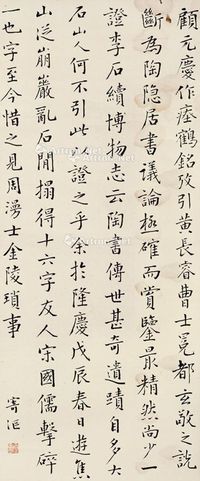 顧元慶作瘞鶴銘攷引黃長睿曹士冕都玄敬之說
斷為陶隱居書議論極確而賞鑒最精然尚少一
證李石續博物志云陶書傳世甚奇遺蹟自多大
石山人何不引此以證之乎余於隆慶戊辰春日遊焦
山泛崩巖亂石間搨得十六字友人宋國儒擊碎
一也字至今惜之見周漫士金陵瑣事
寄漚